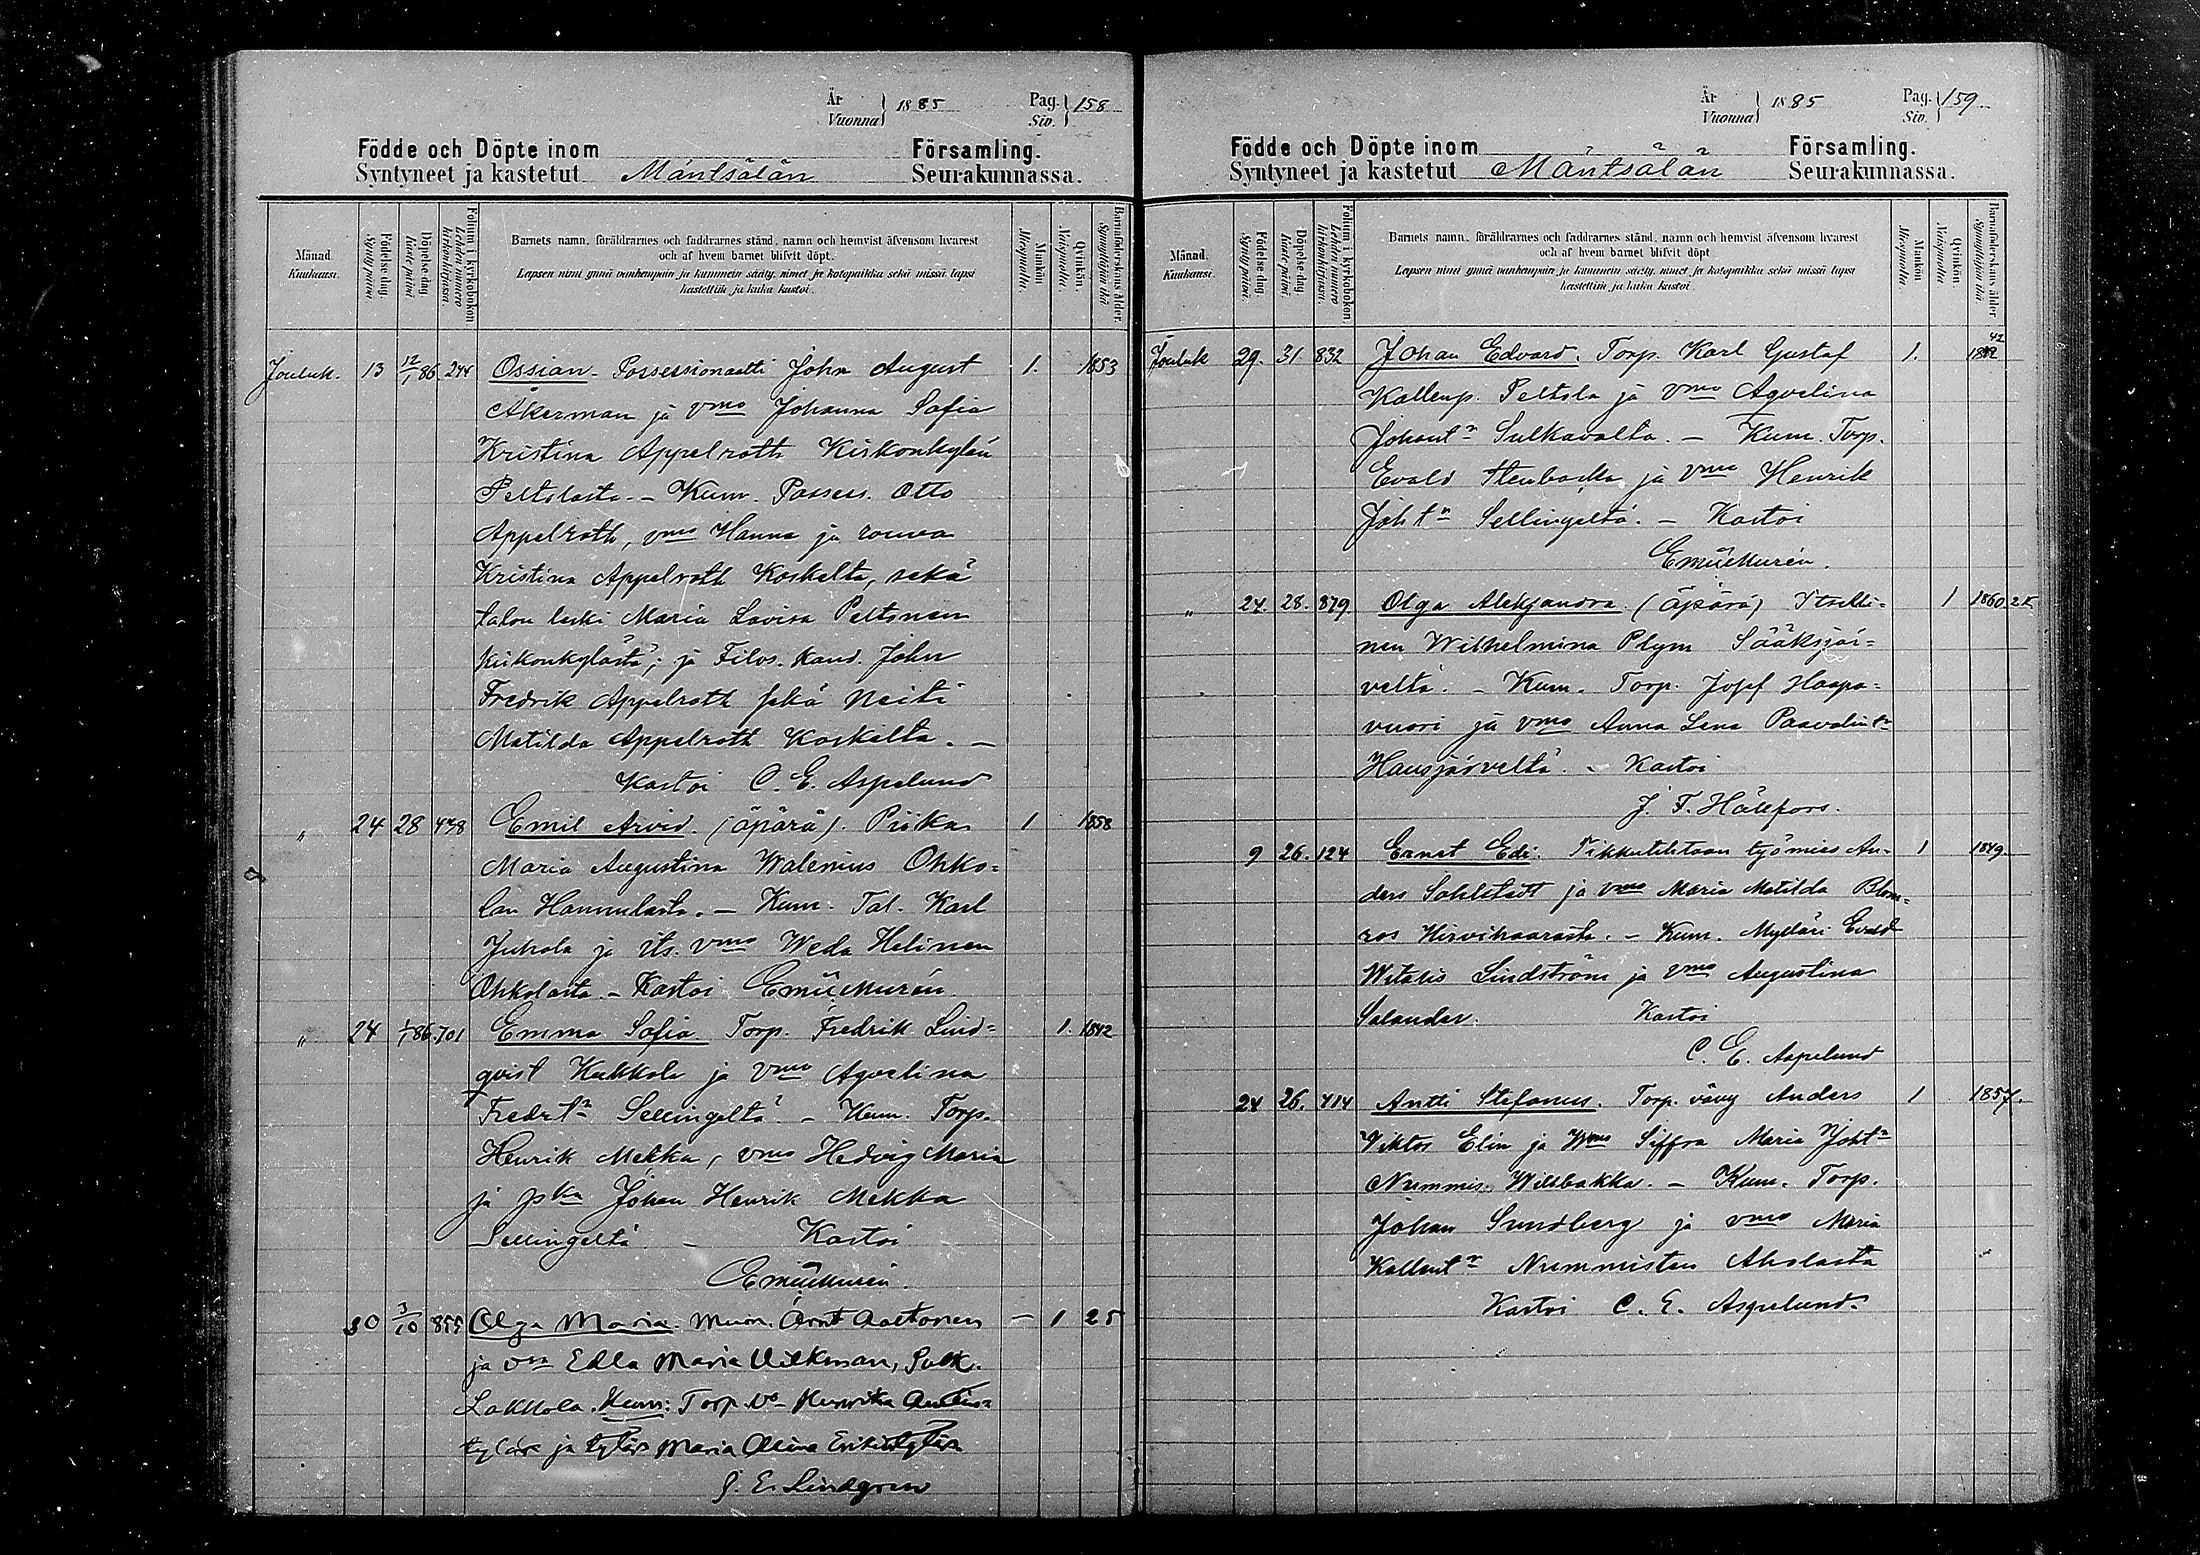 År
Vuonna } 1885 Pag.
Siv. } 158
Födde och Döpte inom Församling.
Syntyneet ja kastetut Mäntsälän Seurakunnassa.
Månad.
Kuukausi.
Födelse dag.
Synty päivä.
Döpelse dag.
Kaste päivä.
Folium i kyrkoboken
Lehden numero kirkonkirjassa.
Barnets namn, föräldrarnes och faddrarnes stånd, namn och hemvist äfvensom hvarest
och af hvem barnet blifvit döpt.
Lapsen nimi ynnä vanhempain ja kummein sääty, nimet ja kotopaikka sekä missä lapsi
kastettiin ja kuka kastoi.
Mankön.
Miespuolta.
Qvinkön.
Naispuolta.
Barnaföderskans ålder.
Synnyttäjän ikä
Jouluk. 13 12/1 86 244 Ossian. Possessionaatti John August 1. 1853
Åkerman ja vmo Johanna Sofia
Kristina Appelroth Kirkonkylän
Peltolasta. - Kum. Possess. Otto
Appelroth, vmo Hanna ja rouva
Kristina Appelroth Koskelta, sekä
talon leski Maria Lovisa Peltonen
kirkonkylästä; ja Filos. Kand. John
Fredrik Appelroth sekä Neiti
Matilda Appelroth Koskelta. -
Kastoi C. E. Aspelund
" 24 28 478 Emil Arvid. (äpärä). Piika 1 1858
Maria Augustina Walenius Ohko=
lan Hannulasta. - Kum. Tal. Karl
Juhola ja its. vmo Weda Helinen
Ohkolasta. - Kastoi Emil Murén
" 24 1/1 86. 701 Emma Sofia. Torp. Fredrik Lind= 1. 1842
qvist Kukkola ja vmo Agvelina
Fredrtr Sellingeltä. - Kum. Torp.
Henrik Mekka, vmo Hedvig Maria
ja pka Johan Henrik Mekka
Sellingeltä - Kastoi
Emil Murén.
30 3/10 855 Olga Maria. Muur. Arnt Aaltonen - 1 25
ja vm Edla Maria Vilkman, Sulk.
Lakkola. Kum: Torp. vo Henrika Antin=
tytär ja tytär Maria Alina Erikintytär
J. E. Lindgren
År
Vuonna } 1885 Pag.
Siv. } 159.
Födde och Döpte inom Församling.
Syntyneet ja kastetut Mäntsälän Seurakunnassa.
Månad.
Kuukausi.
Födelse dag.
Synty päivä.
Döpelse dag.
Kaste päivä.
Folium i kyrkoboken.
Lehden numero kirkonkirjassa.
Barnets namn, föräldrarnes och faddrarnes stånd, namn och hemvist äfvensom hvarest
och af hvem barnet blifvit döpt.
Lapsen nimi ynnä vanhempain ja kummein sääty, nimet ja kotopaikka sekä missä lapsi
kastettiin ja kuka kastoi.
Mankön
Miespuolta.
Qvinkön.
Naispuolta.
Barnaföderskans ålder
Synnyttäjän ikä
Jouluk 29. 31 832 Johan Edvard. Torp. Karl Gustaf 1. 1842
Kallenp. Peltola ja vmo Agvelina
Johantr Sulkavalta. - Kum. Torp.
Evald Stenbacka ja vmo Henrik
Joh tr Sellingeltä. - Kastoi
Emil Murén.
" 24. 28. 879 Olga Aleksandra. (äpärä) Itselli= 1 1860. 25
nen Wilhelmina Plym Sääksjär=
veltä. - Kum. Torp. Josef Haapa=
vuori ja vmo Anna Lena Paavalintr
Hausjärveltä. - Kastoi
J. F. Hällfors.
9 26. 124 Ernst Edi. Tikkutehtaan työmies An= 1 1849.
ders Sahlstedt ja vmo Maria Matilda Blom=
ros Hirvihaarasta. - Kum. Mylläri Evald
Witalis Lindström ja vmo Augustina
Salander. Kastoi
C. E. Aspelund
24 26. 414 Antti Stefanus. Torp. vävy Anders 1 1857.
Viktor Elin ja Wmo Siffra Maria Johtr
Nummis. Wilsbakka. - Kum. Torp.
Johan Sundberg ja vmo Maria
Kallentr Nummisten Aholasta
Kastoi C. E. Aspelund.